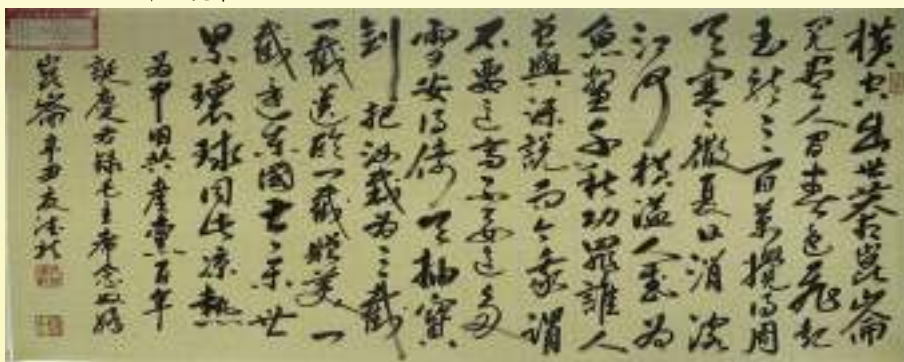 横空出世莽崑崙
阅尽人间春色飞起
玉龙三百万搅得周
天寒彻夏日消溶
江河横溢人或为
鱼鳖千秋功罪谁人
曾與评説而今我謂
不要这高不要这多
雪安得倚天抽寶
剑把汝裁为三截
一截遗欧一截赠美一
截还东國太平世
界環球同此凉熱
为中国共産党百年
誕慶右録毛主席念奴娇
崑崙辛丑